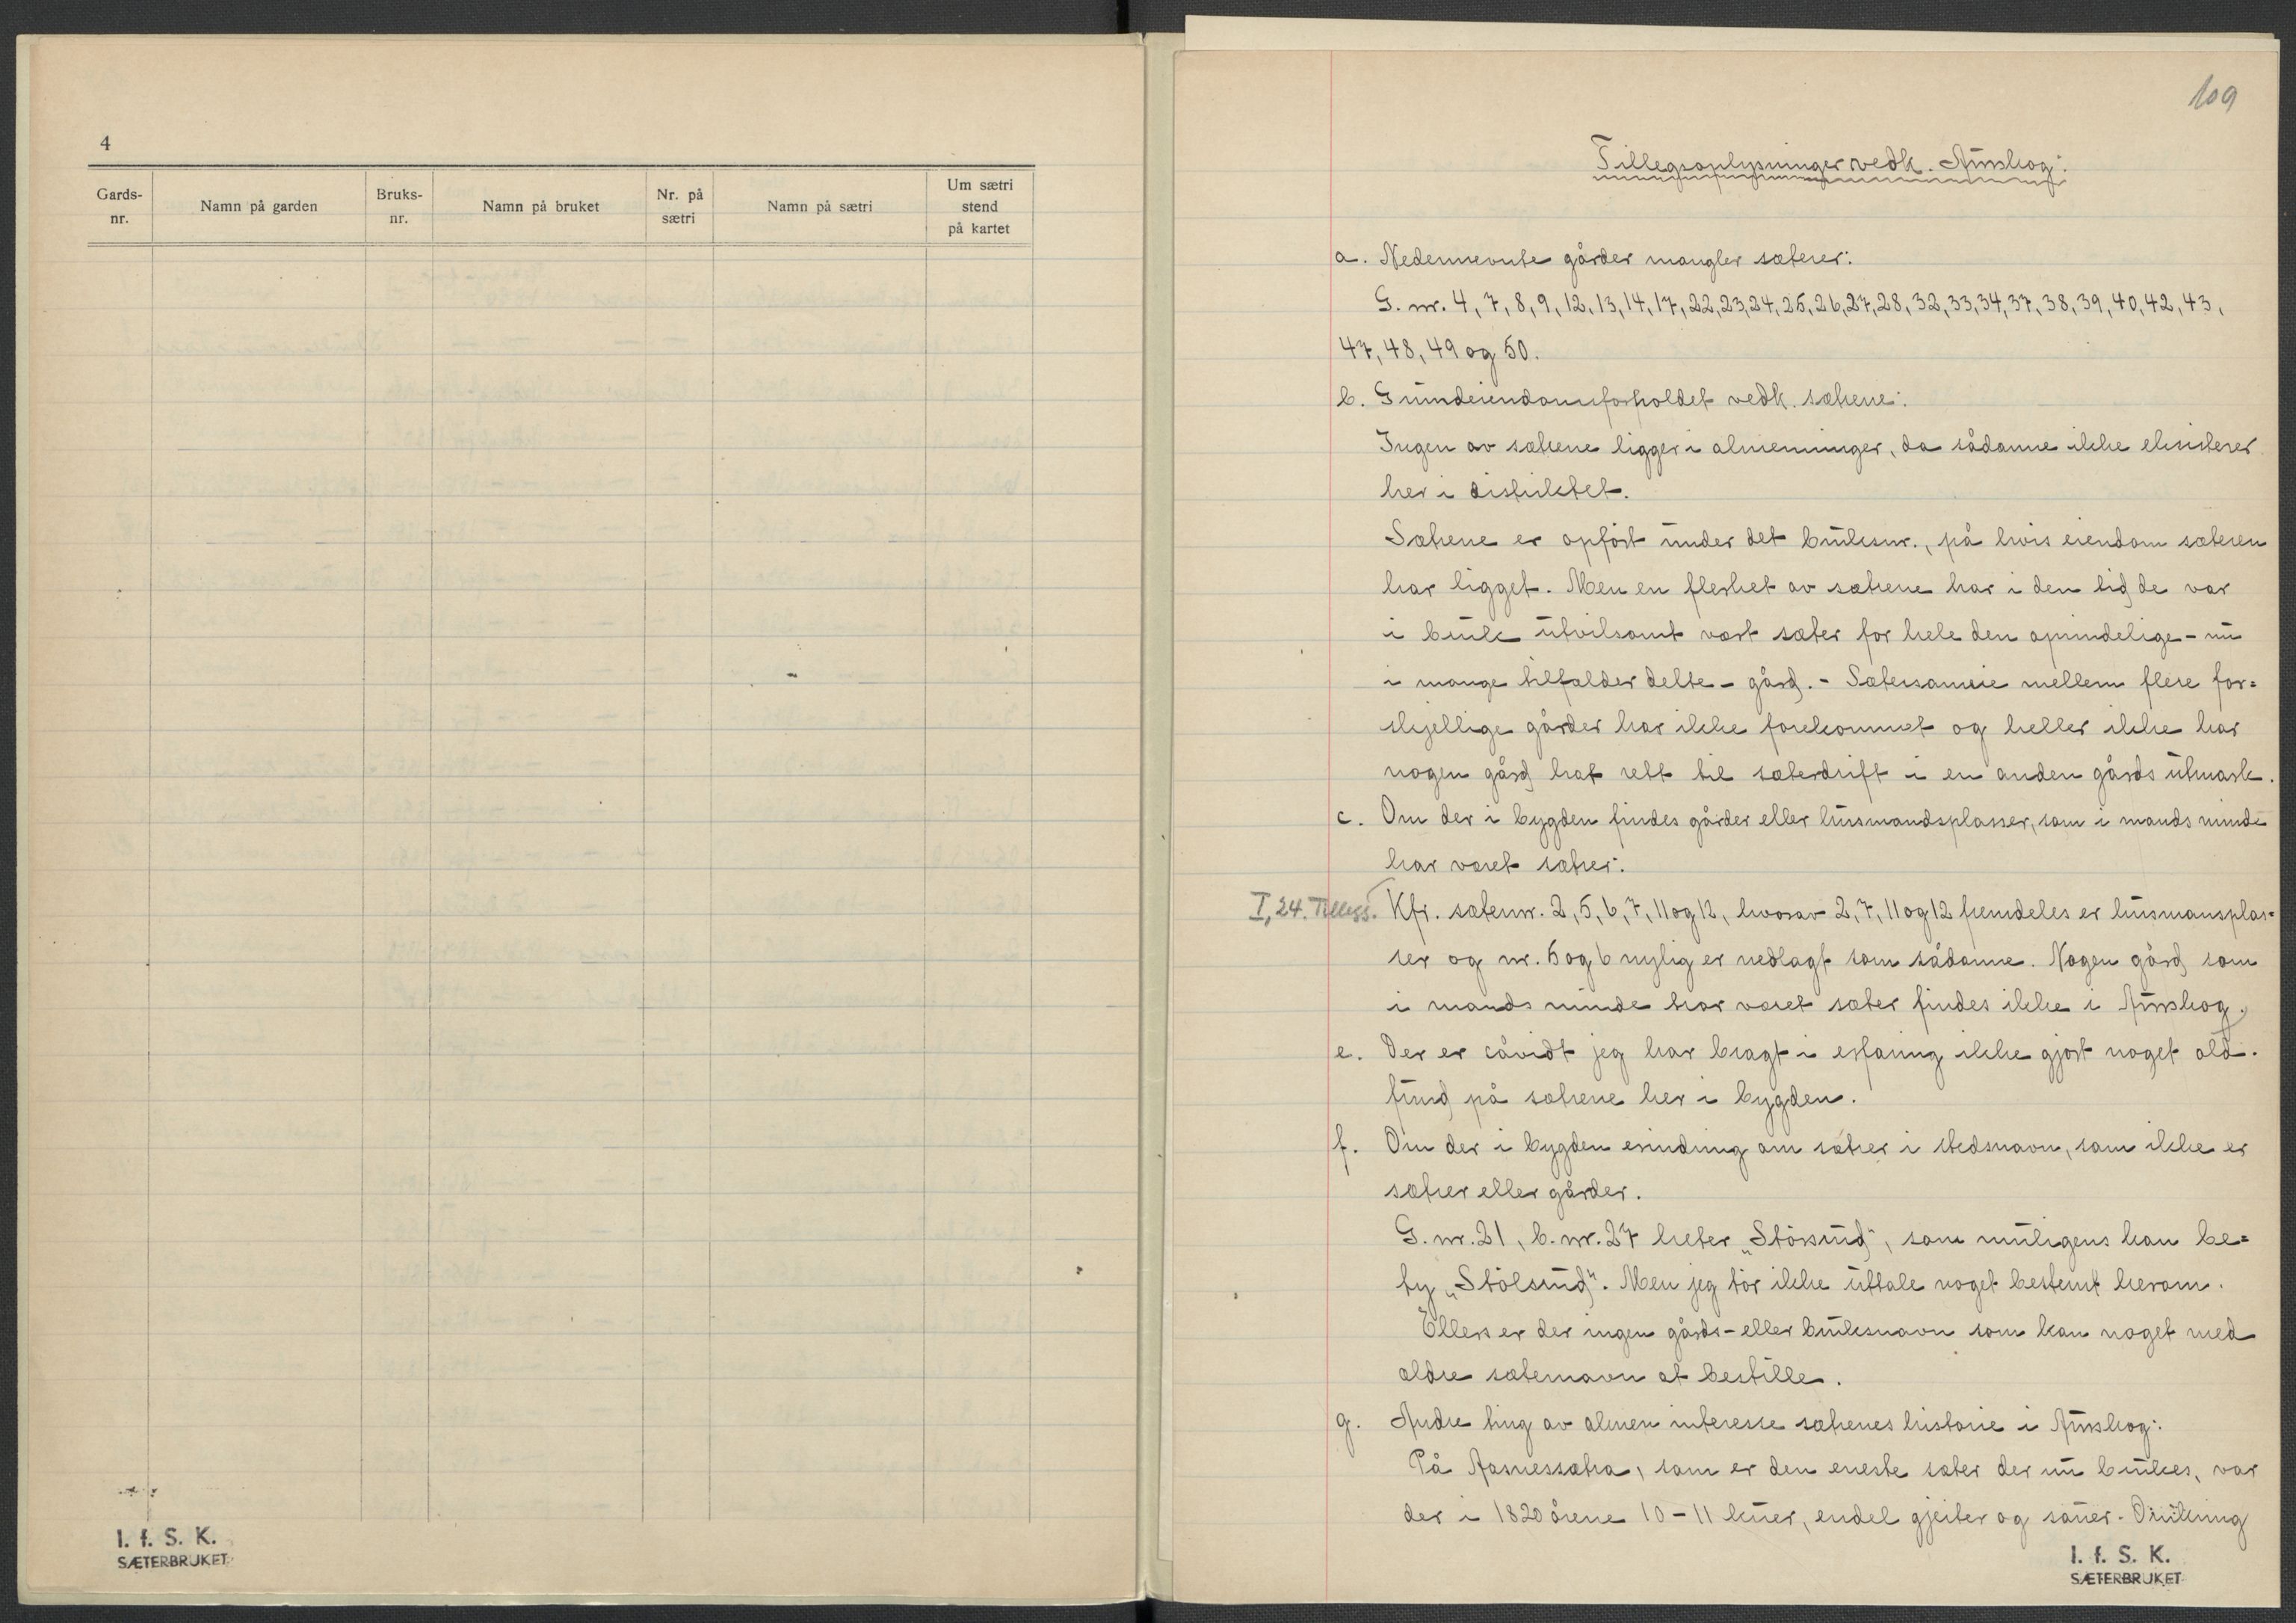 4
Gards-
nr.
Namn på garden
Bruks-
nr.
Namn på bruket
Nr. på
sætri
Namn på sætri
Um sætri
stend
på kartet
I. f. S. K.
SÆTERBRUKET
109
Tillegsoplysninger vedk. Aurskog:
a. Nedennevnte gårder mangler sæterer:
G. nr. 4, 7, 8, 9, 12, 13, 14, 17, 22, 23, 24, 25, 26, 27, 28, 32, 33, 34, 37, 38, 39, 40, 42, 43,
47, 48, 49 og 50.
b. Grundeiendomsforholdet vedk. sætrene:
Ingen av sætrene ligger i almenninger, da sådanne ikke eksisterer
her i distriktet.
Sætrene er opført under det bruksnr., på hvis eiendom sæteren
har ligget. Men en flerhet av sætrene har i den tid de var
i bruk utvilsomt vært sæter for hele den oprindelige - nu
i mange tilfælder delte - gård. - Sætersameie mellem flere for=
skjellige gårder har ikke forekommet og heller ikke har
nogen gård hat rett til sæterdrift i en anden gårds utmark.
c. Om der i bygden findes gårder eller husmandsplasser, som i mands minde
har været sætrer:
I, 24. Tillegg. Kfr. sæternr. 2, 5, 6, 7, 11 og 12, hvorav 2, 7, 11 og 12 fremdeles er husmansplas=
ser og nr. 5 og 6 nylig er nedlagt som sådanne. Nogen gård som
i mands minde har været sæter findes ikke i Aurskog.
e. Der er såvidt jeg har bragt i erfaring ikke gjort noget old-
fund på sætrene her i bygden.
f. Om der i bygden erindring om sætrer i stedsnavn, som ikke er
sætrer eller gårder.
G. nr. 21, b. nr. 27 heter „Størsrud", som muligens kan be=
ty „Stølsrud". Men jeg tør ikke uttale noget bestemt herom.
Ellers er der ingen gårds- eller bruksnavn som kan noget med
ældre sæternavn at bestille.
g. Andre ting av almen interesse sætrenes historie i Aurskog:
På Aasnessætra, som er den eneste sæter der nu brukes, var
der i 1820 årene 10 - 11 kuer, endel gjeiter og sauer. - Omkring
I. f. S. K.
SÆTERBRUKET